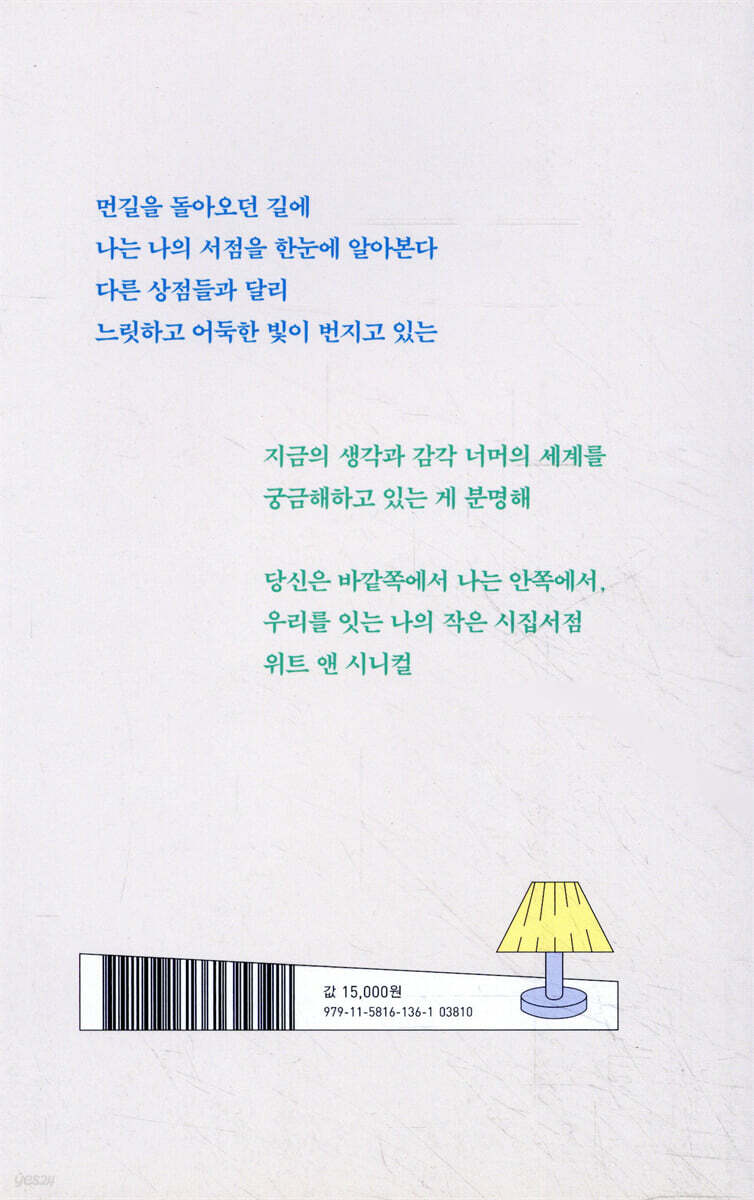 먼길을 돌아오던 길에
나는 나의 서점을 한눈에 알아본다
다른 상점들과 달리
느릿하고 어둑한 빛이 번지고 있는
지금의 생각과 감각 너머의 세계를
궁금해하고 있는 게 분명해
당신은 바깥쪽에서 나는 안쪽에서,
우리를 잇는 나의 작은 시집서점
위트 앤 시니컬
값 15,000원
979-11-5816-136-1 03810
yes24